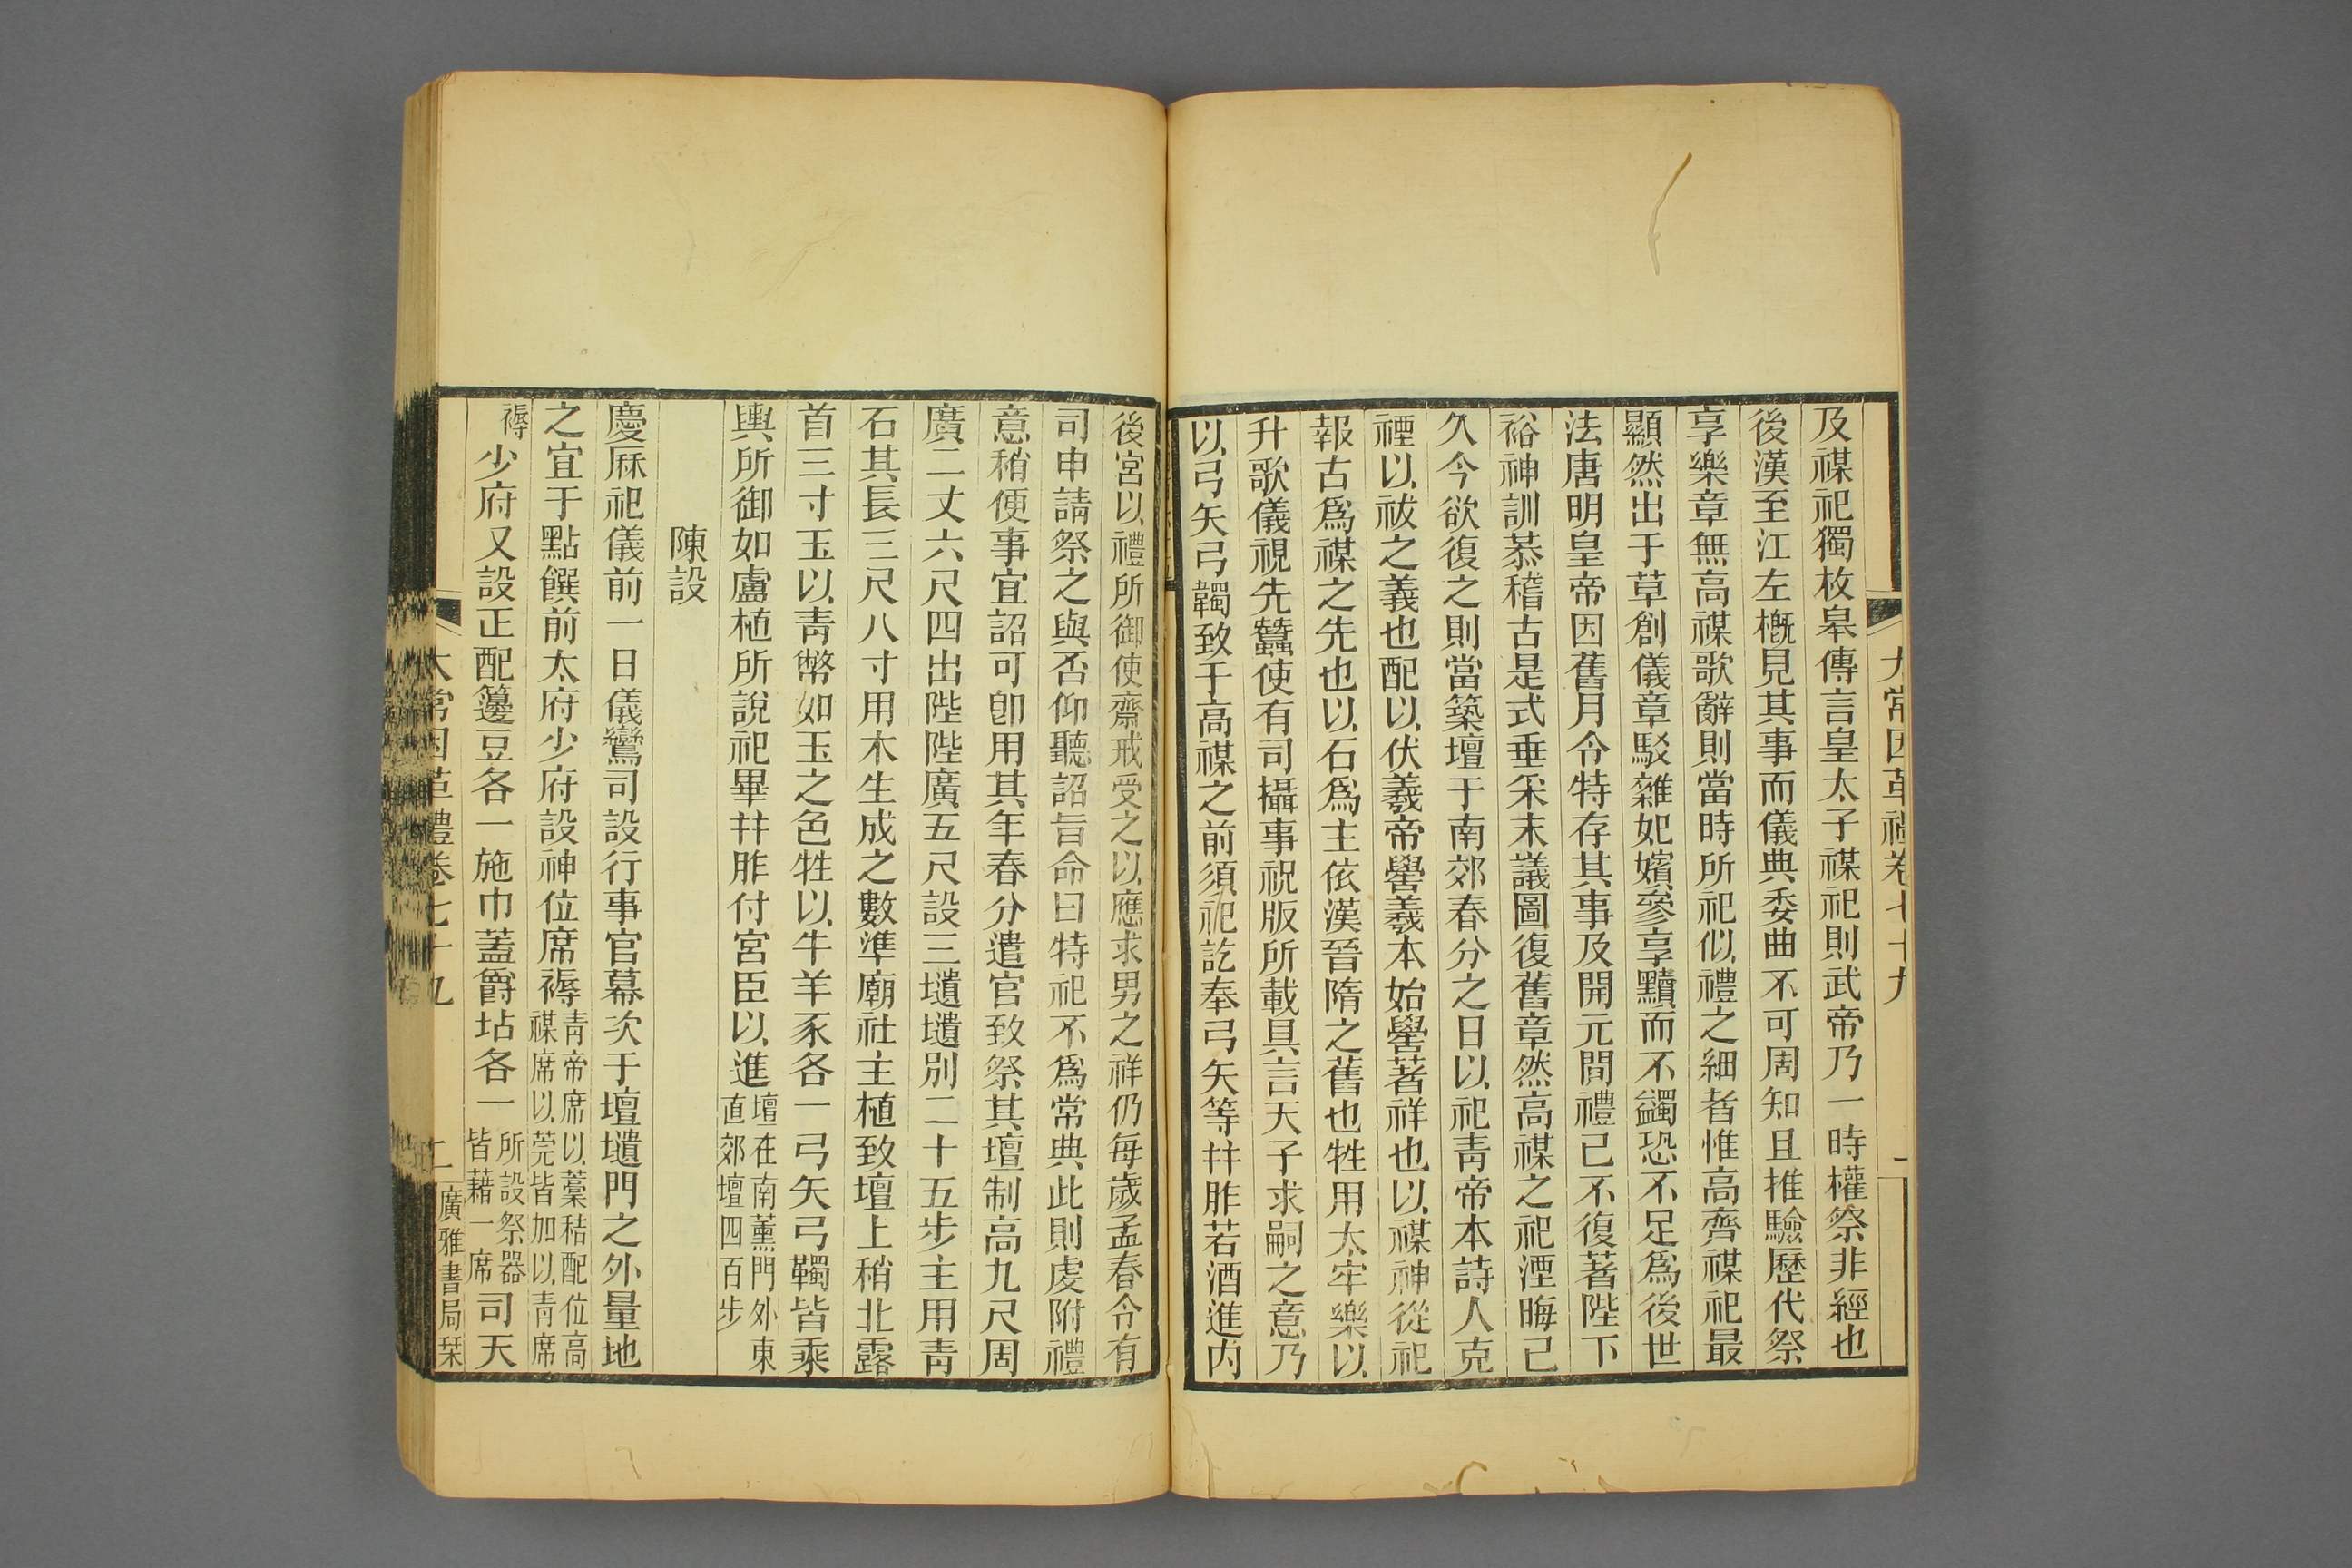 太常因革禮卷七十九
一
及禖祀獨枚皋傳言皇太子禖祀則武帝乃一時權祭非經也
後漢至江左槪見其事而儀典委曲不可周知且推驗歷代祭
享樂章無高禖歌辭則當時所祀似禮之細者惟高齊禖祀最
顯然出于草創儀章駁雜妃嬪參享黷而不蠲恐不足爲後世
法唐明皇帝因舊月令特存其事及開元閒禮已不復著陛下
裕神訓慕稽古是式垂采末議圖復舊章然高禖之祀湮晦已
久今欲復之則當築壇于南郊春分之日以祀靑帝本詩人克
禋以祓之義也配以伏羲帝嚳羲本始嚳著祥也以禖神從祀
報古爲禖之先也以石爲主依漢晉隋之舊也牲用太牢樂以
升歌儀視先蠶使有司攝事祝版所載具言天子求嗣之意乃
以弓矢弓韣致于高禖之前須祀訖奉弓矢等幷胙若酒進內
後宮以禮所御使齋戒受之以應求男之祥仍每歲孟春令有
司申請祭之與否仰聽詔旨命曰特祀不爲常典此則虔附禮
意稍便事宜詔可卽用其年春分遣官致祭其壇制高九尺周
廣二丈六尺四出陛陛廣五尺設三壝壝別二十五步主用靑
石其長三尺八寸用木生成之數準廟社主植致壇上稍北露
首三寸玉以靑幣如玉之色牲以牛羊豕各一弓矢弓韣皆乘
輿所御如盧植所說祀畢幷胙付宮臣以進壇在南薰門外東
直郊壇四百步
陳設
慶厤祀儀前一日儀鸞司設行事官幕次于壇壝門之外量地
之宜于點饌前太府少府設神位席褥靑帝席以藁秸配位高
禖席以莞皆加以靑席
褥少府又設正配籩豆各一施巾蓋爵坫各一所設祭器
皆藉一席司天
太常因革禮卷七十九
二
廣雅書局栞